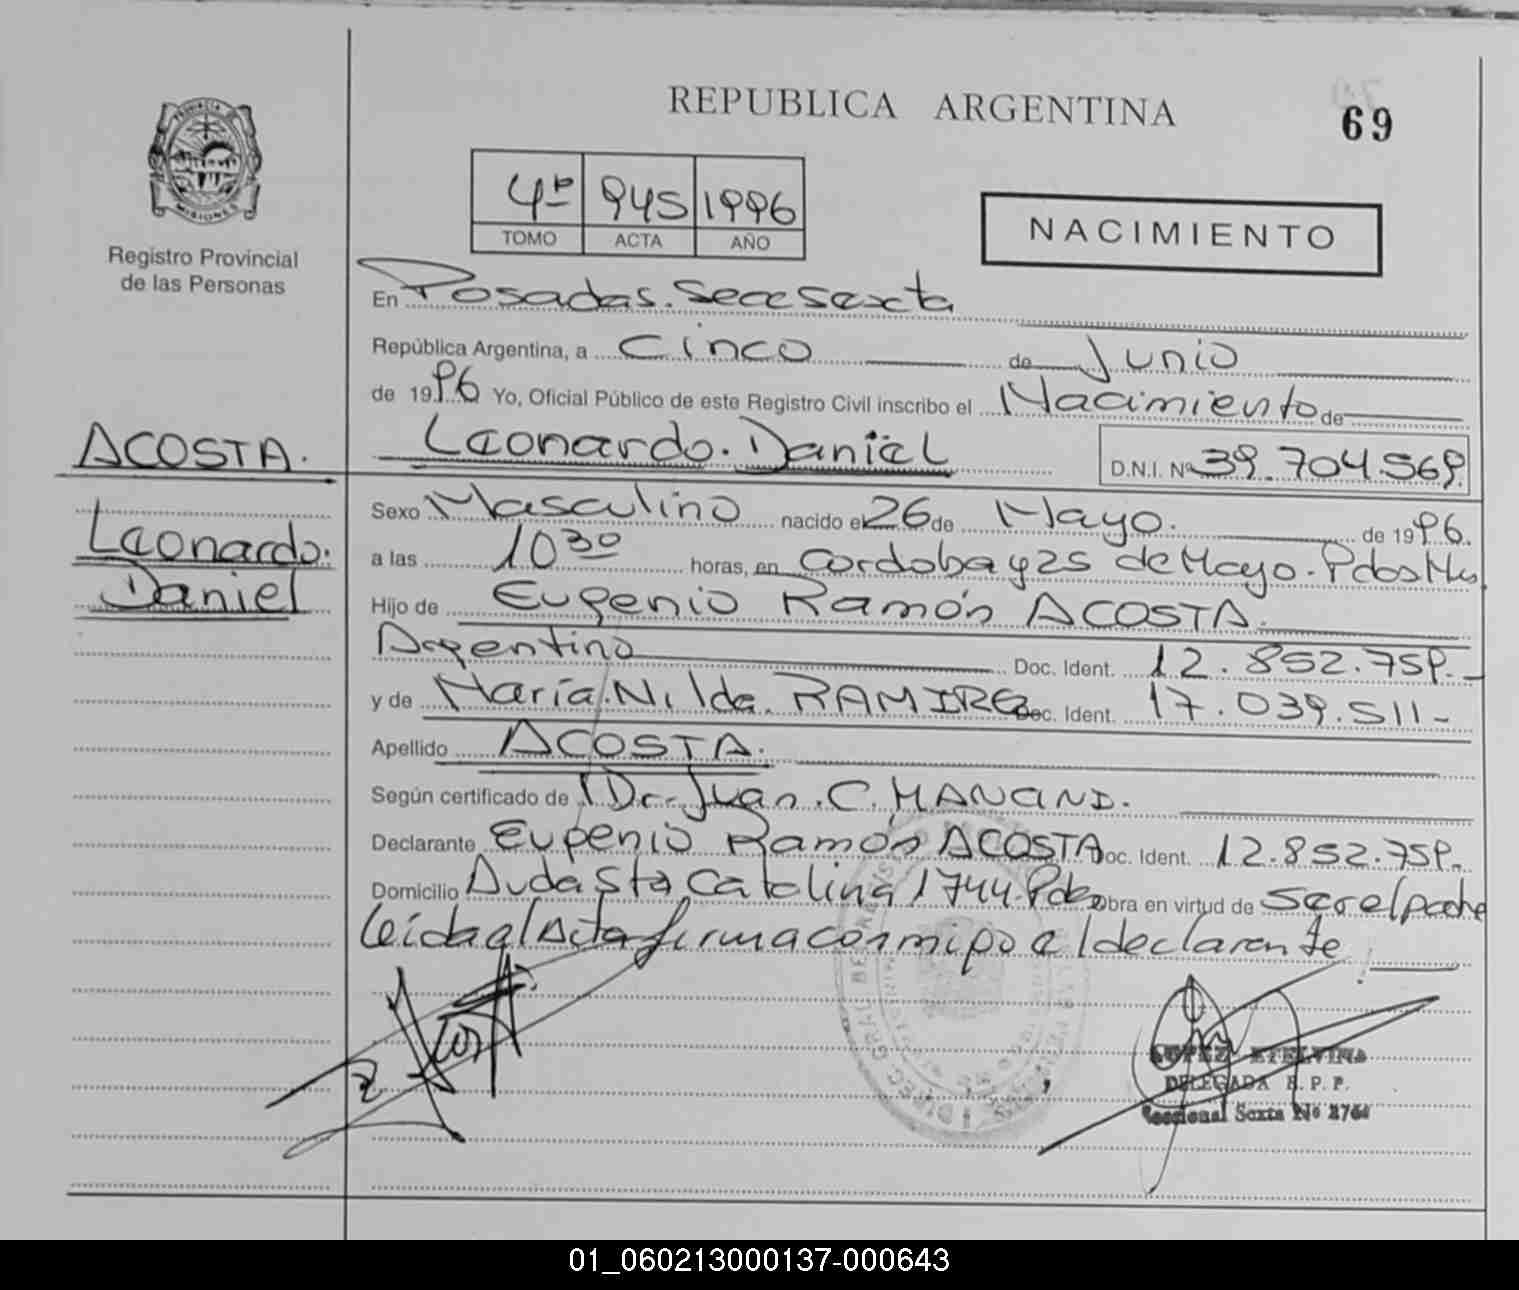 REPUBLICA ARGENTINA
69
PROVINCIA DE
MISIONES
Registro Provincial
de las Personas
4º 945 1996
TOMO ACTA AÑO
NACIMIENTO
En Posadas. Secc Sexta
República Argentina, a Cinco de Junio
de 1996 Yo, Oficial Público de este Registro Civil inscribo el Nacimiento de
Leonardo. Daniel D.N.I. Nº 39.704.569.
ACOSTA.
Leonardo.
Daniel
Sexo Masculino nacido el 26 de Mayo. de 1996.
a las 10 30 horas, en Cordoba y 25 de Mayo. Pdas Mnes
Hijo de Eugenio Ramón ACOSTA.
Argentino Doc. Ident. 12.852.759.-
y de María. Nilda. RAMIREZ Doc. Ident. 17.039.511-
Apellido ACOSTA.
Según certificado de Dr. Juan. C.
Declarante Eugenio Ramón ACOSTA Doc. Ident. 12.852.759.-
Domicilio Avda Sta Catalina 1744. Pdas obra en virtud de ser el padre
Leida el Acta firma conmigo el declarante
LOPEZ ETELVINA
DELEGADA R. P. P.
Seccional Sexta Nº
01_060213000137-000643